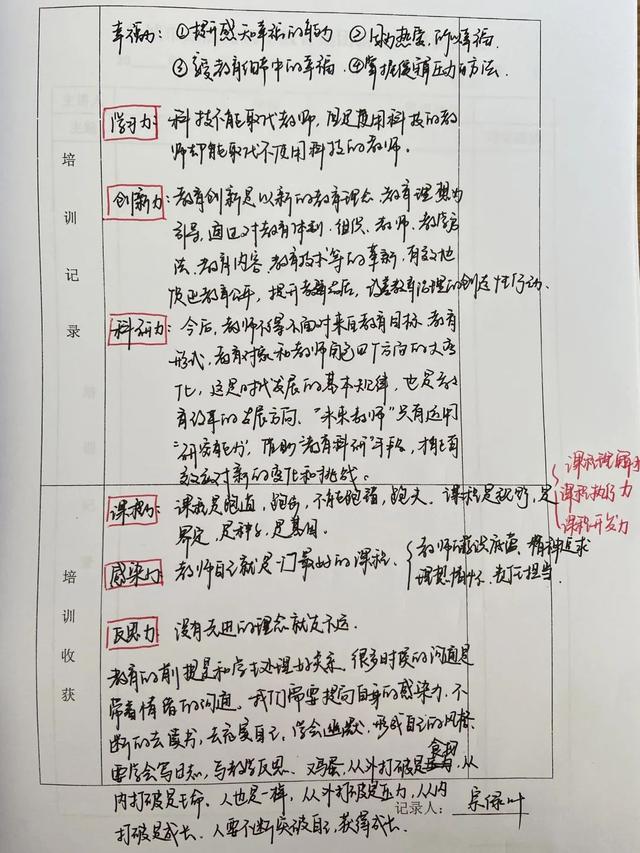 幸福力: ①提升感知幸福的能力 ②因为热爱,所以幸福
③ 教育细节中的幸福 ④掌握缓解压力的方法.
学习力: 科技不能取代教师,但是使用科技的教
师却能取代不使用科技的教师。
培训记录
创新力: 教育创新是以新的教育理念、教育理想为
引导,通过对教育体制、组织、教师、教学方
法、教育内容、教育技术等的革新,有效地
促进教育公平,提升教育,创造性行动.
科研力: 今后,教师不得不面对来自教育目标、教育
形式,教育对象和教师角色四个方向的大变
化,这是时代发展的基本规律,也是教
育改革的发展方向."未来教师"只有运用
"研究能力",借助"教育科研"手段,才能有
效应对新的变化和挑战。
课程力: 课程是跑道,跑步,不能跑错,跑丢. 课程是视野,是
界定,是种子,是基因.
课程理解力
课程执行力
课程开发力
感染力: 教师自己就是一门最好的课程.
教师底蕴,精神追求
理想情怀,责任担当.
培训收获
反思力: 没有先进的理念就走不远.
教育的前提是和学生处理好关系。很多时候的沟通是
带着情绪的沟通。我们需要提高自身的感染力,不
断的去读书,去充实自己,学会幽默,形成自己的风格.
要学会写日志,写教学反思、鸡蛋,从外打破是食物,从
内打破是生命.人也是一样,从外打破是压力,从内
打破是成长.人要不断突破自己,获得成长.
记录人: